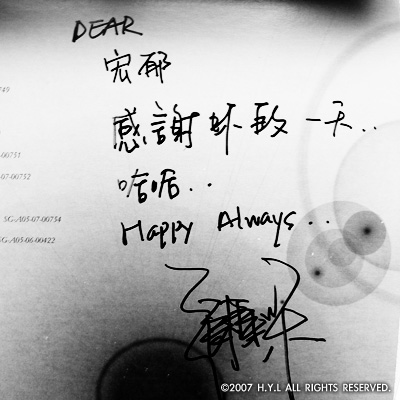 DEAR
宏郁
749
感謝 一天..
-00751
-07-00752
哈哈..
SG-A05-07-00754
Happy Always...
SG-A05-06-00422
©2007 H.Y.L ALL RIGHTS RESERVED.